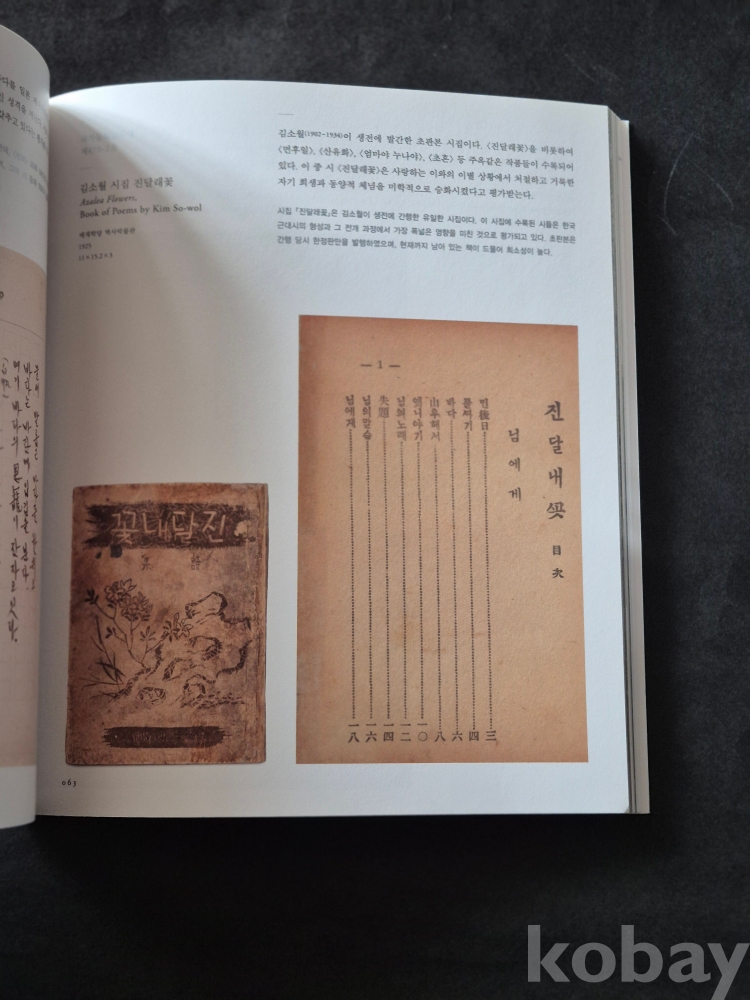 김소월 시집 진달래꽃
Azalea Flowers,
Book of Poems by Kim So-wol
배재학당 역사박물관
1925
11×15.2×3
김소월(1902~1934)이 생전에 발간한 초판본 시집이다. 〈진달래꽃〉을 비롯하여
〈먼후일〉, 〈산유화〉, 〈엄마야 누나야〉, 〈초혼〉 등 주옥같은 작품들이 수록되어
있다. 이 중 시 〈진달래꽃〉은 사랑하는 이와의 이별 상황에서 처절하고 거룩한
자기 희생과 동양적 체념을 미학적으로 승화시켰다고 평가받는다.
시집 『진달래꽃』은 김소월이 생전에 간행한 유일한 시집이다. 이 시집에 수록된 시들은 한국
근대시의 형성과 그 전개 과정에서 가장 폭넓은 영향을 미친 것으로 평가되고 있다. 초판본은
간행 당시 한정판만을 발행하였으며, 현재까지 남아 있는 책이 드물어 희소성이 높다.
— 1 —
진달내꽃 目次
님에게
먼後日 三
풀싸기 四
바다 六
山우헤서 八
옛니야기 一〇
님의노래 一二
失題 一四
님의말슴 一六
님에게 一八
꽃내달진
063
kobay